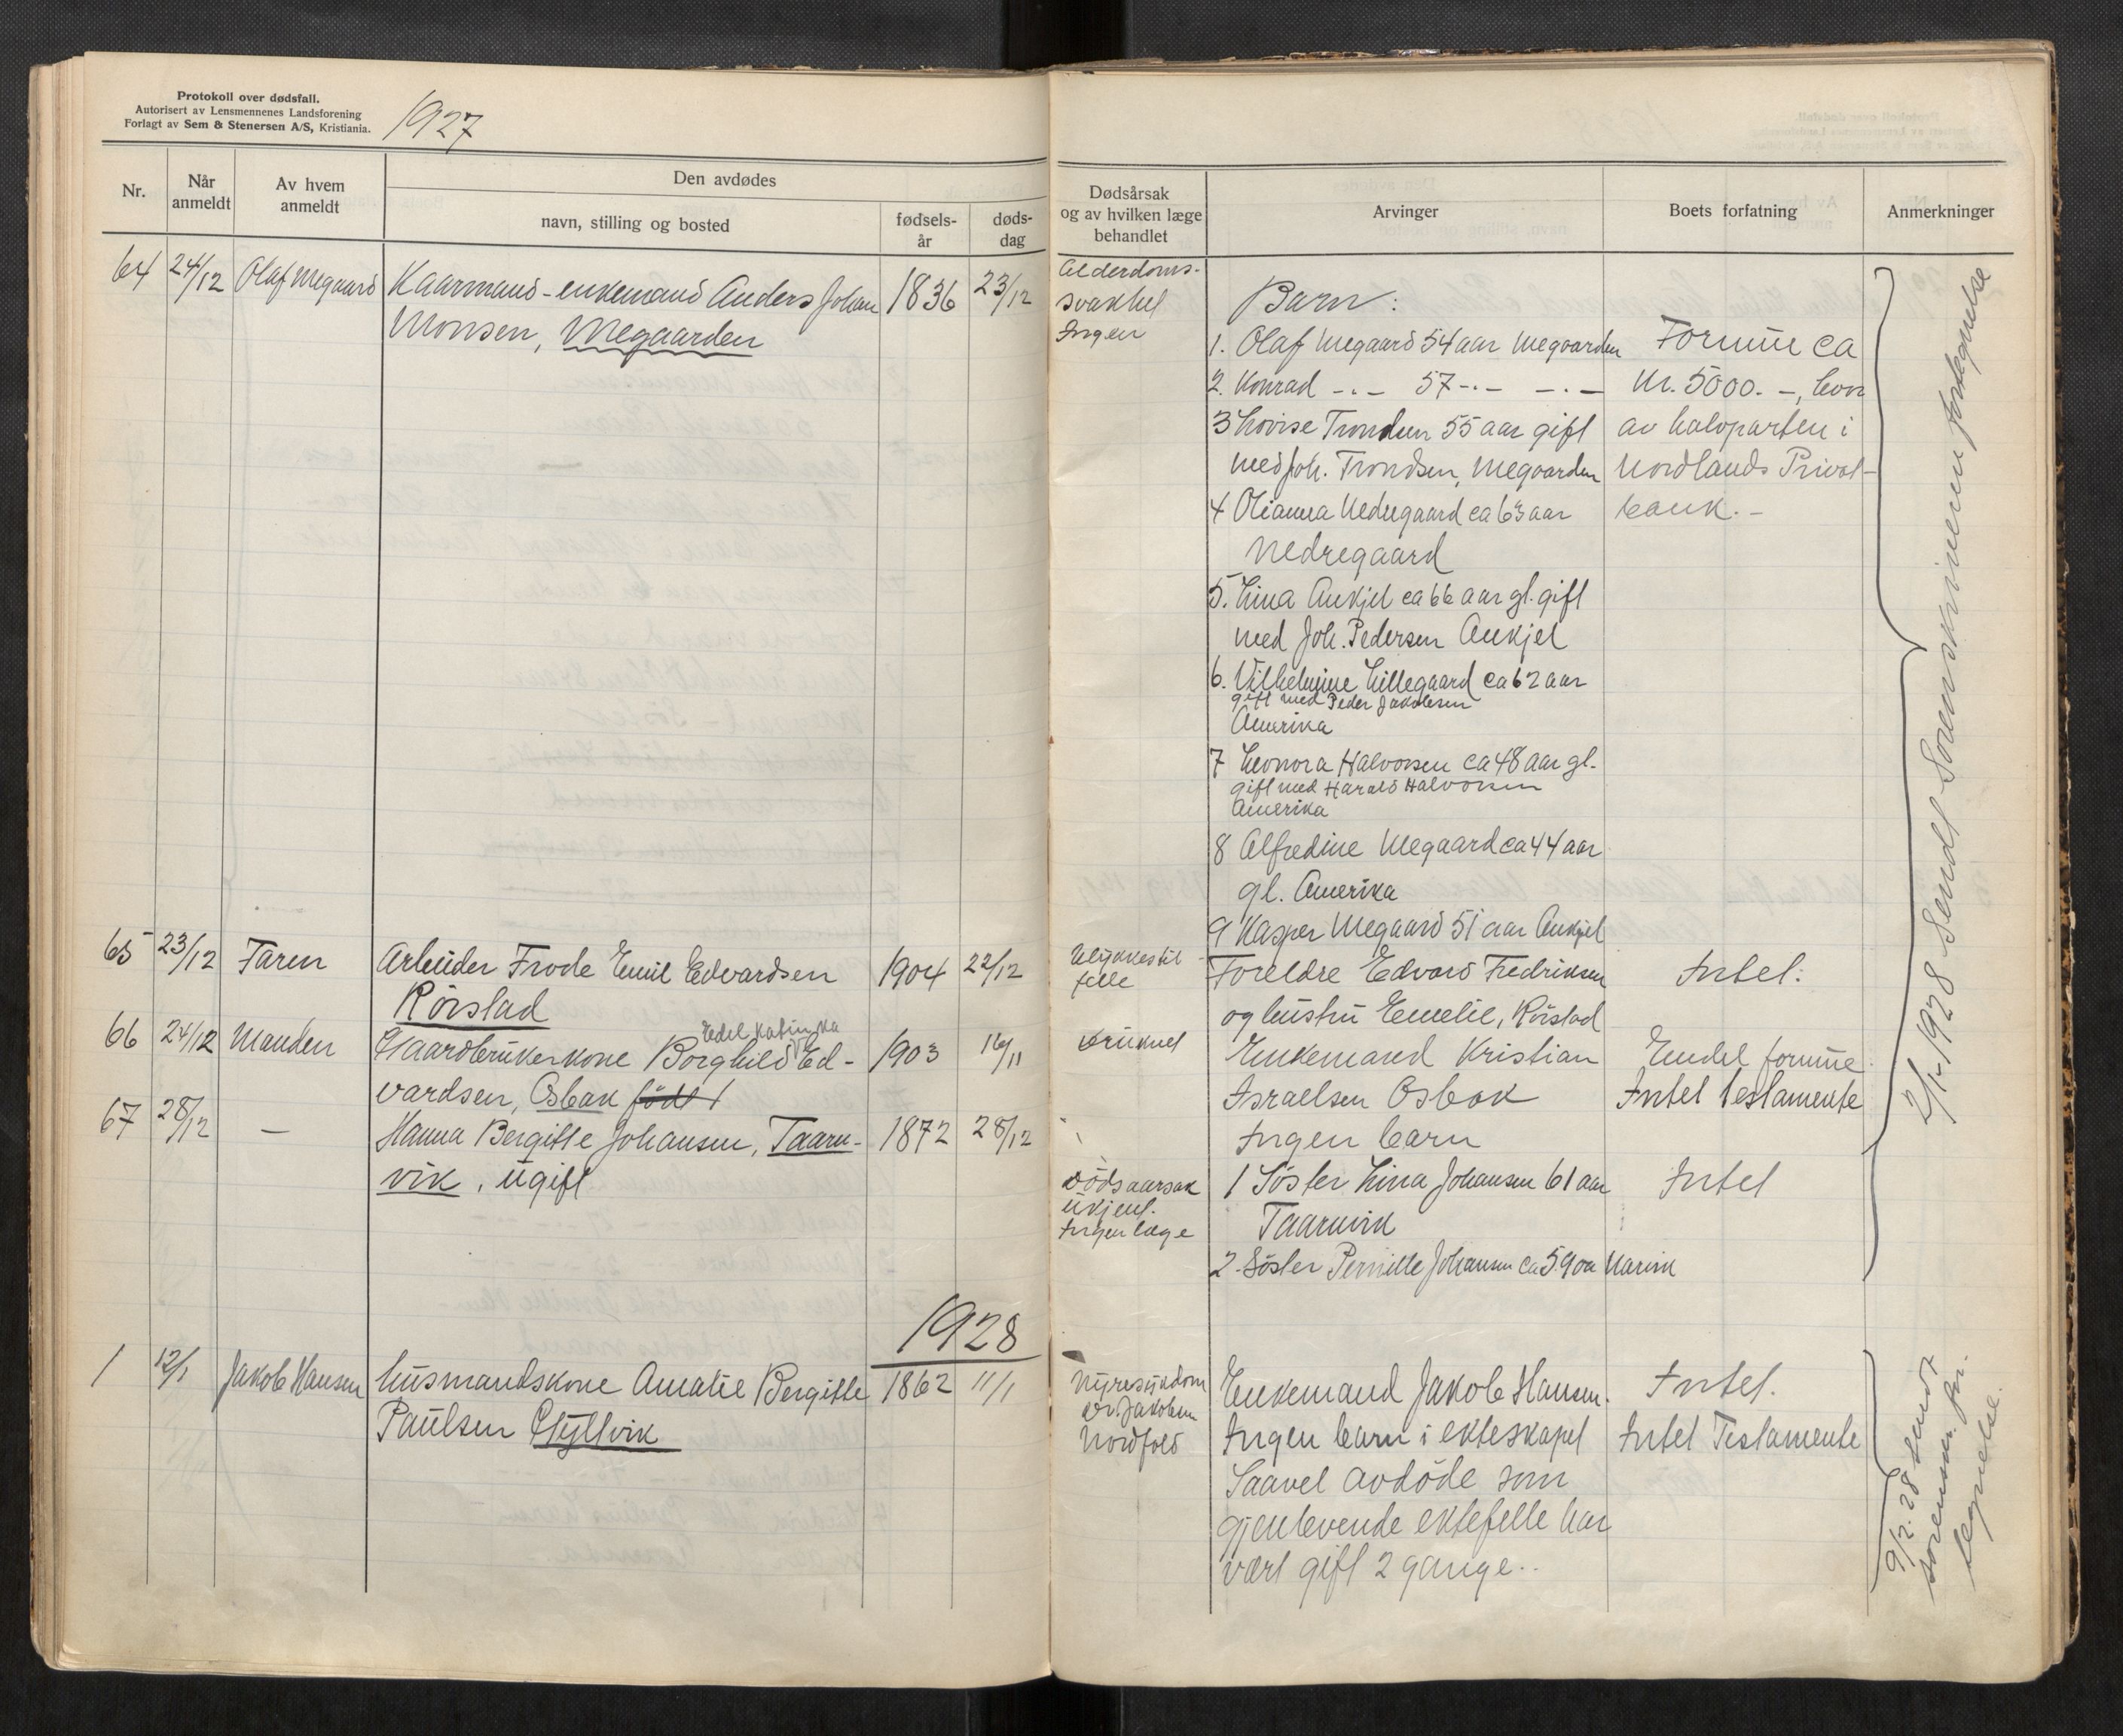 Protokoll over dødsfall.
Autorisert av Lensmennenes Landsforening
Forlagt av Sem & Stenersen A/S, Kristiania.
1927
Nr.
Når anmeldt
Av hvem anmeldt
Den avdødes
navn, stilling og bosted
fødsels-år
døds-dag
Dødsårsak og av hvilken læge behandlet
Arvinger
Boets forfatning
Anmerkninger
64 24/12 Olaf Megaard Kaarmand-enkemand Anders Johan 1836 23/12
Monsen, Megaarden
Alderdoms-
svakhet
Ingen
Barn:
1. Olaf Megaard 54 aar Megaarden
2. Konrad -"- 57 -"- -"-
3 Lovise Trondsen 55 aar gift
med Joh. Trondsen, Megaarden
4 Olianna Nedregaard ca 63 aar
Nedregaard
5. Lina Aukjel ca 66 aar gl. gift
med Joh. Pedersen Aukjel
6. Vilhelmine Lillegaard ca 62 aar
gift med Peder Jakobsen
Amerika
7 Leonora Halvorsen ca 48 aar gl.
gift med Harald Halvorsen
Amerika
8 Alfredine Megaard ca 44 aar
gl. Amerika
9 Kasper Megaard 51 aar Aukjel
Formue ca
Kr. 5000.-, hvor
av halvparten i
Nordlands Privat-
bank.-
65 23/12 Faren Arbeider Frode Emil Edvardsen 1904 22/12
Rörstad
Ulykkestil-
felle
Foreldre Edvard Fredriksen
og hustru Emelie, Rörstad
Intet.
66 24/12 Manden Gaardbrukerkone Borghild Ed- 1903 16/11
Edel Katinka
vardsen, Osbak födt
druknet
Enkemand Kristian
Israelsen Osbak
Ingen barn
Endel formue
Intet testamente
67 28/12 — Hanna Bergitte Johansen, Taarn- 1872 28/12
vik, ugift
Dödsaarsak
ukjent.
Ingen læge
1 Söster Lina Johansen 61 aar
Taarnvik
2. Söster Pernille Johansen ca 59 aa Narvik
Intet
2/1-1928 Sendt Sorenskriveren fortegnelse
1928
1 12/1 Jakob Hansen husmandskone Amalie Bergitte 1862 11/1
Paulsen Gyltvik
Nyresykdom
Dr. Jakobsen
Nordfold
Enkemand Jakob Hansen.
Ingen barn i ekteskapet
Saavel avdöde som
gjenlevende ektefelle har
vært gift 2 gange..
Intet.
Intet Testamente
9/2. 28 sendt
sorenskr. for-
tegnelse.